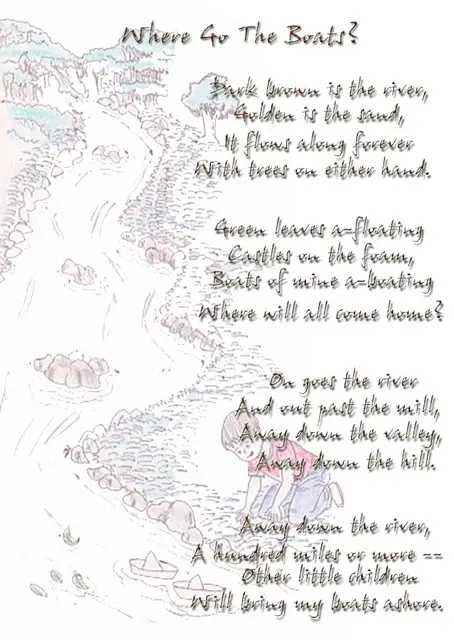 Where Go The Boats?
Dark brown is the river,
Golden is the sand,
It flows along forever
With trees on either hand.
Green leaves a-floating
Castles on the foam,
Boats of mine a-boating
Where will all come home?
On goes the river
And out past the mill,
Away down the valley,
Away down the hill.
Away down the river,
A hundred miles or more --
Other little children
Will bring my boats ashore.